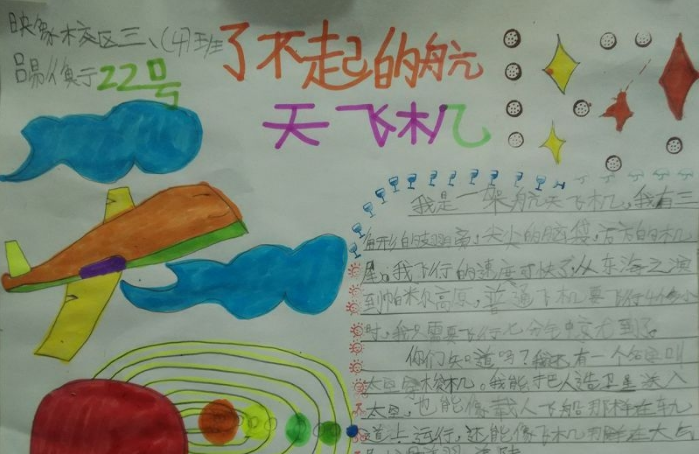 映象校区三、(4)班
22号
了不起的航
天飞机
我是一架航天飞机,我有三
角形的翅膀,尖尖的脑袋,方方的机
尾。我飞行的速度可快了,从东海之滨
到帕米尔高原,普通飞机要飞行4个多小
时,我只需要飞行七分钟就到了。
你们知道吗?我还有一个名字叫
太空穿梭机。我能把人造卫星送入
太空,也能像载人飞船那样在轨
道上运行,还能像飞机那样在大气